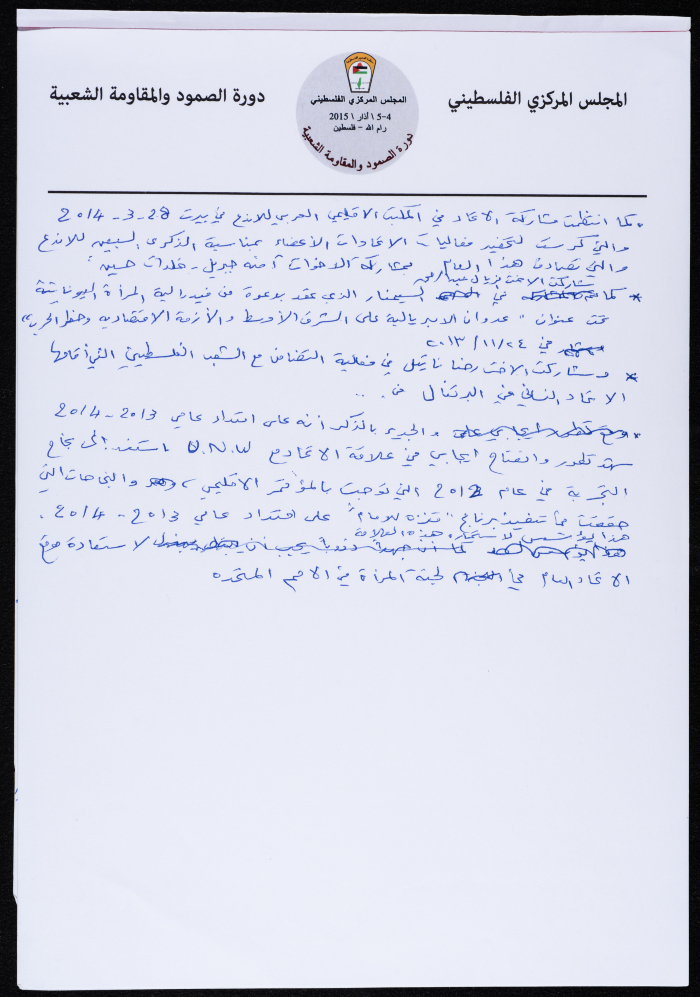 المجلس المركزي الفلسطيني
المجلس المركزي الفلسطيني
4-5 \ آذار \ 2015
رام الله - فلسطين
دورة الصمود والمقاومة الشعبية
دورة الصمود والمقاومة الشعبية
• كما انتظمت مشاركة الاتحاد في المكتب الاقليمي العربي للاندع في بيروت 28-3-2014
والتي كرست لتحضير فعاليات الاتحادات الأعضاء بمناسبة الذكرى السبعين للاندع
والتي تصادف هذا العام بمشاركة الاخوات آمنه جبريل - خلدات حسين
شاركت الاخت فريال
* كما في السيمنار الذي عقد بدعوة من فيدرالية المرأة اليونانية
تحت عنوان "عدوان الامبريالية على الشرق الأوسط والأزمة الاقتصادية وخطر الحرب"
في 24/11/2013
* وشاركت الاخت رضا نايل في فعالية التضامن مع الشعب الفلسطيني التي أقامها
الاتحاد النسائي في البرتغال في . . .
• والجدير بالذكر أنه على امتداد عامي 2013-2014
شهد تطور وانفتاح ايجابي في علاقة الاتحاد مع U.N.W استند الى نجاح
التجربة في عام 2012 التي توجت بالمؤتمر الاقليمي، والنجاحات التي
حققت في تنفيذ برنامج "نتزه للامام" على امتداد عامي 2013-2014.
هذا يؤسس لاستمرار هذه العلاقة
كما أن جهداً دؤوباً يجب أن لاستعادة موقع
الاتحاد العام في لجنة المرأة في الامم المتحده